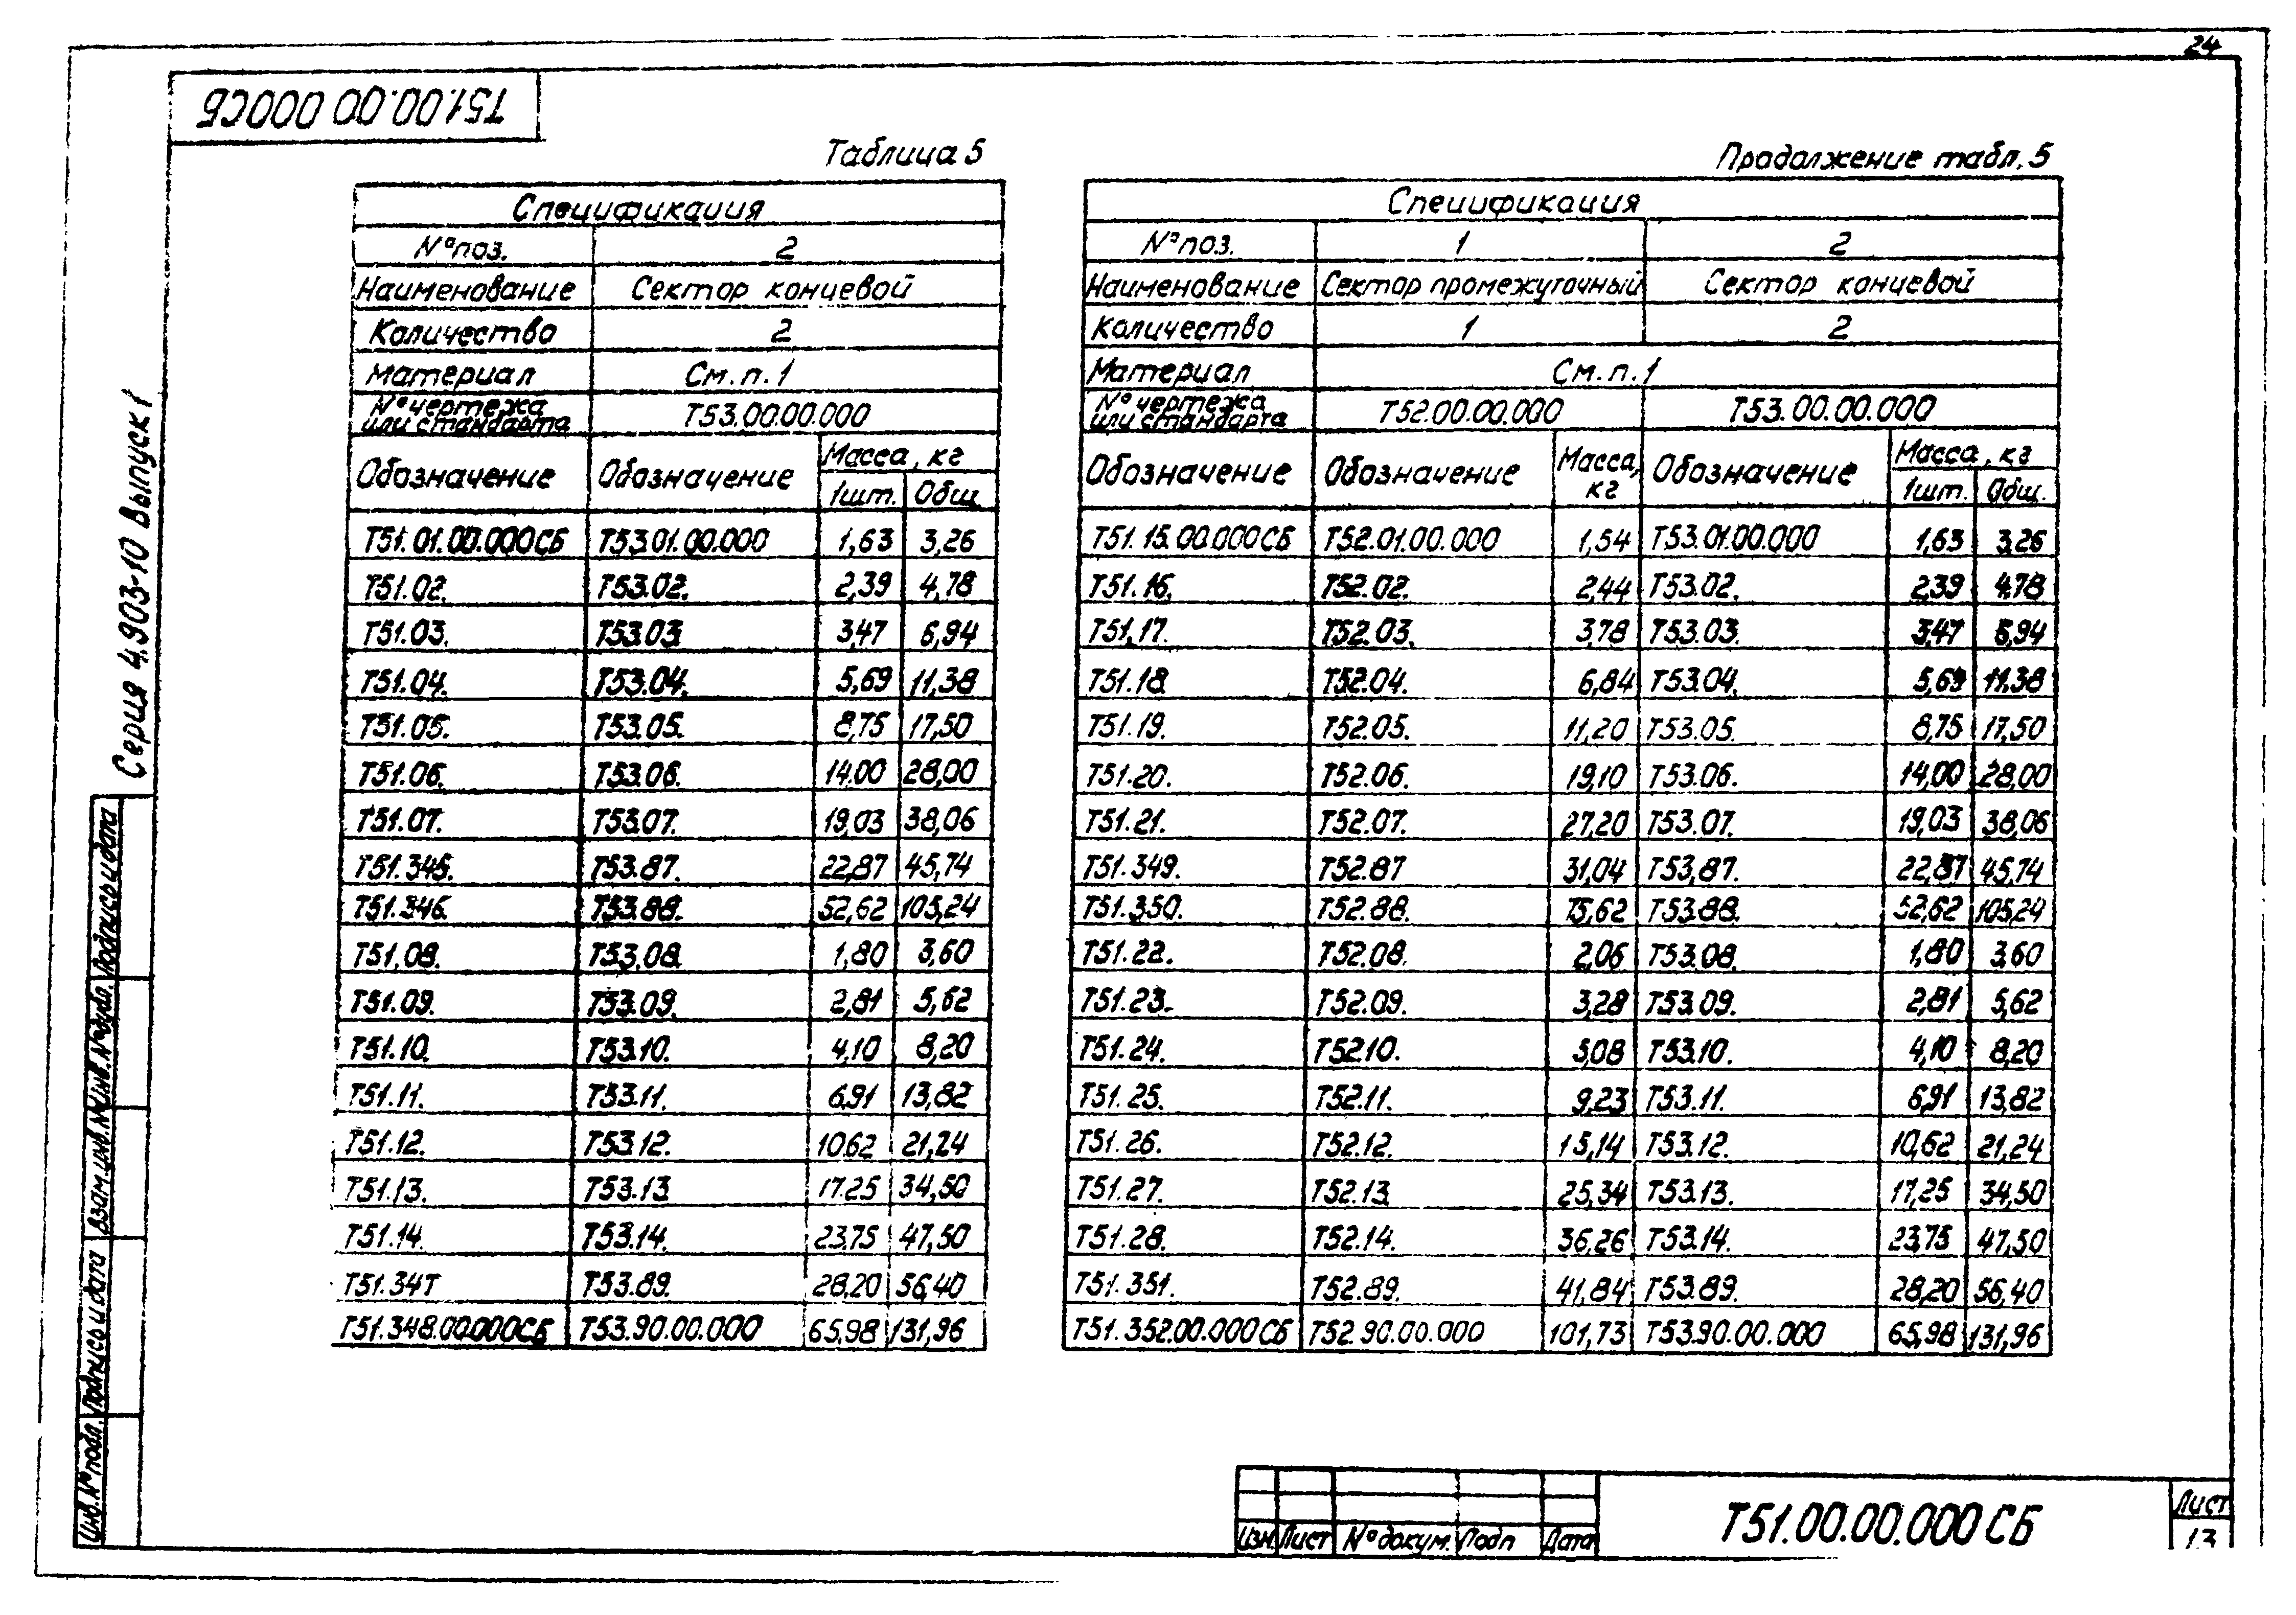 24
Т51.00.00.000СБ
Серия 4.903-10 Выпуск 1
Таблица 5
Спецификация
№ поз. 2
Наименование Сектор концевой
Количество 2
Материал См. п. 1
№ чертежа или стандарта Т53.00.00.000
Обозначение Обозначение Масса, кг
1шт. Общ.
Т51.01.00.000СБ Т53.01.00.000 1,63 3,26
Т51.02. Т53.02. 2,39 4,78
Т51.03. Т53.03 3,47 6,94
Т51.04. Т53.04. 5,69 11,38
Т51.05. Т53.05. 8,75 17,50
Т51.06. Т53.06. 14.00 28,00
Т51.07. Т53.07. 19,03 38,06
Т51.345. Т53.87. 22,87 45,74
Т51.346. Т53.88. 52,62 105,24
Т51.08. Т53.08. 1,80 3,60
Т51.09. Т53.09. 2,81 5,62
Т51.10. Т53.10. 4,10 8,20
Т51.11. Т53.11. 6,91 13,82
Т51.12. Т53.12. 10,62 21,24
Т51.13. Т53.13 17.25 34,50
Т51.14. Т53.14. 23,75 47,50
Т51.347 Т53.89. 28,20 56,40
Т51.348.00.000СБ Т53.90.00.000 65,98 131,96
Продолжение табл. 5
Спецификация
№ поз. 1 2
Наименование Сектор промежуточный Сектор концевой
Количество 1 2
Материал См. п. 1
№ чертежа или стандарта Т52.00.00.000 Т53.00.00.000
Обозначение Обозначение Масса, кг Обозначение Масса, кг
1шт. Общ.
Т51.15.00.000СБ Т52.01.00.000 1,54 Т53.01.00.000 1,63 3,26
Т51.16. Т52.02. 2,44 Т53.02. 2,39 4,78
Т51.17. Т52.03. 3,78 Т53.03. 3,47 6,94
Т51.18. Т52.04. 6,84 Т53.04. 5,69 11,38
Т51.19. Т52.05. 11,20 Т53.05. 8,75 17,50
Т51.20. Т52.06. 19,10 Т53.06. 14,00 28,00
Т51.21. Т52.07. 27,20 Т53.07. 19,03 38,06
Т51.349. Т52.87 31,04 Т53.87. 22,87 45,74
Т51.350. Т52.88. 75,62 Т53.88. 52,62 105,24
Т51.22. Т52.08. 2,06 Т53.08. 1,80 3,60
Т51.23. Т52.09. 3,28 Т53.09. 2,81 5,62
Т51.24. Т52.10. 5,08 Т53.10. 4,10 8,20
Т51.25. Т52.11. 9,23 Т53.11. 6,91 13,82
Т51.26. Т52.12. 15,14 Т53.12. 10,62 21,24
Т51.27. Т52.13. 25,34 Т53.13. 17,25 34,50
Т51.28. Т52.14. 36,26 Т53.14. 23,75 47,50
Т51.351. Т52.89. 41,84 Т53.89. 28,20 56,40
Т51.352.00.000СБ Т52.90.00.000 101,73 Т53.90.00.000 65,98 131,96
Инв. № подл. Подпись и дата Взам. инв. № Инв. № дубл. Подпись и дата
Изм. Лист № докум. Подп Дата
Т51.00.00.000 СБ
Лист
13